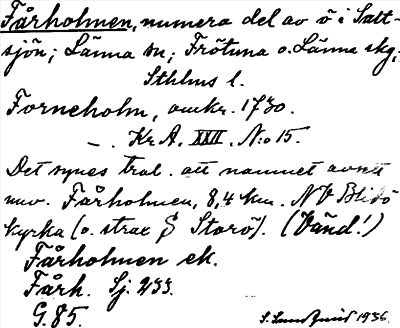 Fårholmen, numera del av ö i Salt-
sjön; Länna sn; Frötuna o. Länna skg;
Sthlms l.
Forneholm, omkr. 1730.
—. Kr A, XXII, N:o 15.
Det synes trol. att namnet avsett
nuv. Fårholmen, 8,4 km. NV Blidö
kyrka (o. strax S Storö). (Vänd!)
Fårholmen ek.
Fårh. Sj. 233.
G. 85.
1936.